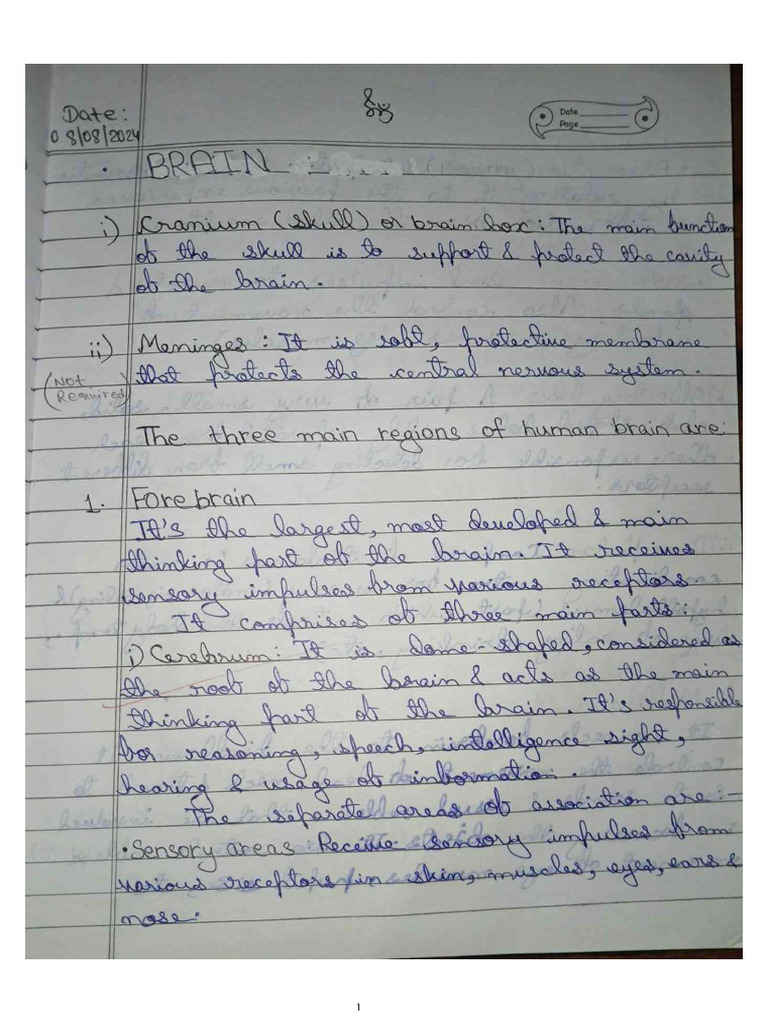 Date:
08/08/2024
Date
Page
• BRAIN
i) Cranium (skull) or brain box: The main function
of the skull is to support & protect the cavity
of the brain.
ii) Meninges: It is soft, protective membrane
(Not Required) that protects the central nervous system.
The three main regions of human brain are:
1. Forebrain
It's the largest, most developed & main
thinking part of the brain. It receives
sensory impulses from various receptors
It comprises of three main parts:
i) Cerebrum: It is dome-shaped, considered as
the roof of the brain & acts as the main
thinking part of the brain. It's responsible
for reasoning, speech, intelligence sight,
hearing & usage of information.
The separate areas of association are:-
• Sensory areas Receive sensory impulses from
various receptors in skin, muscles, eyes, ears &
nose.
1